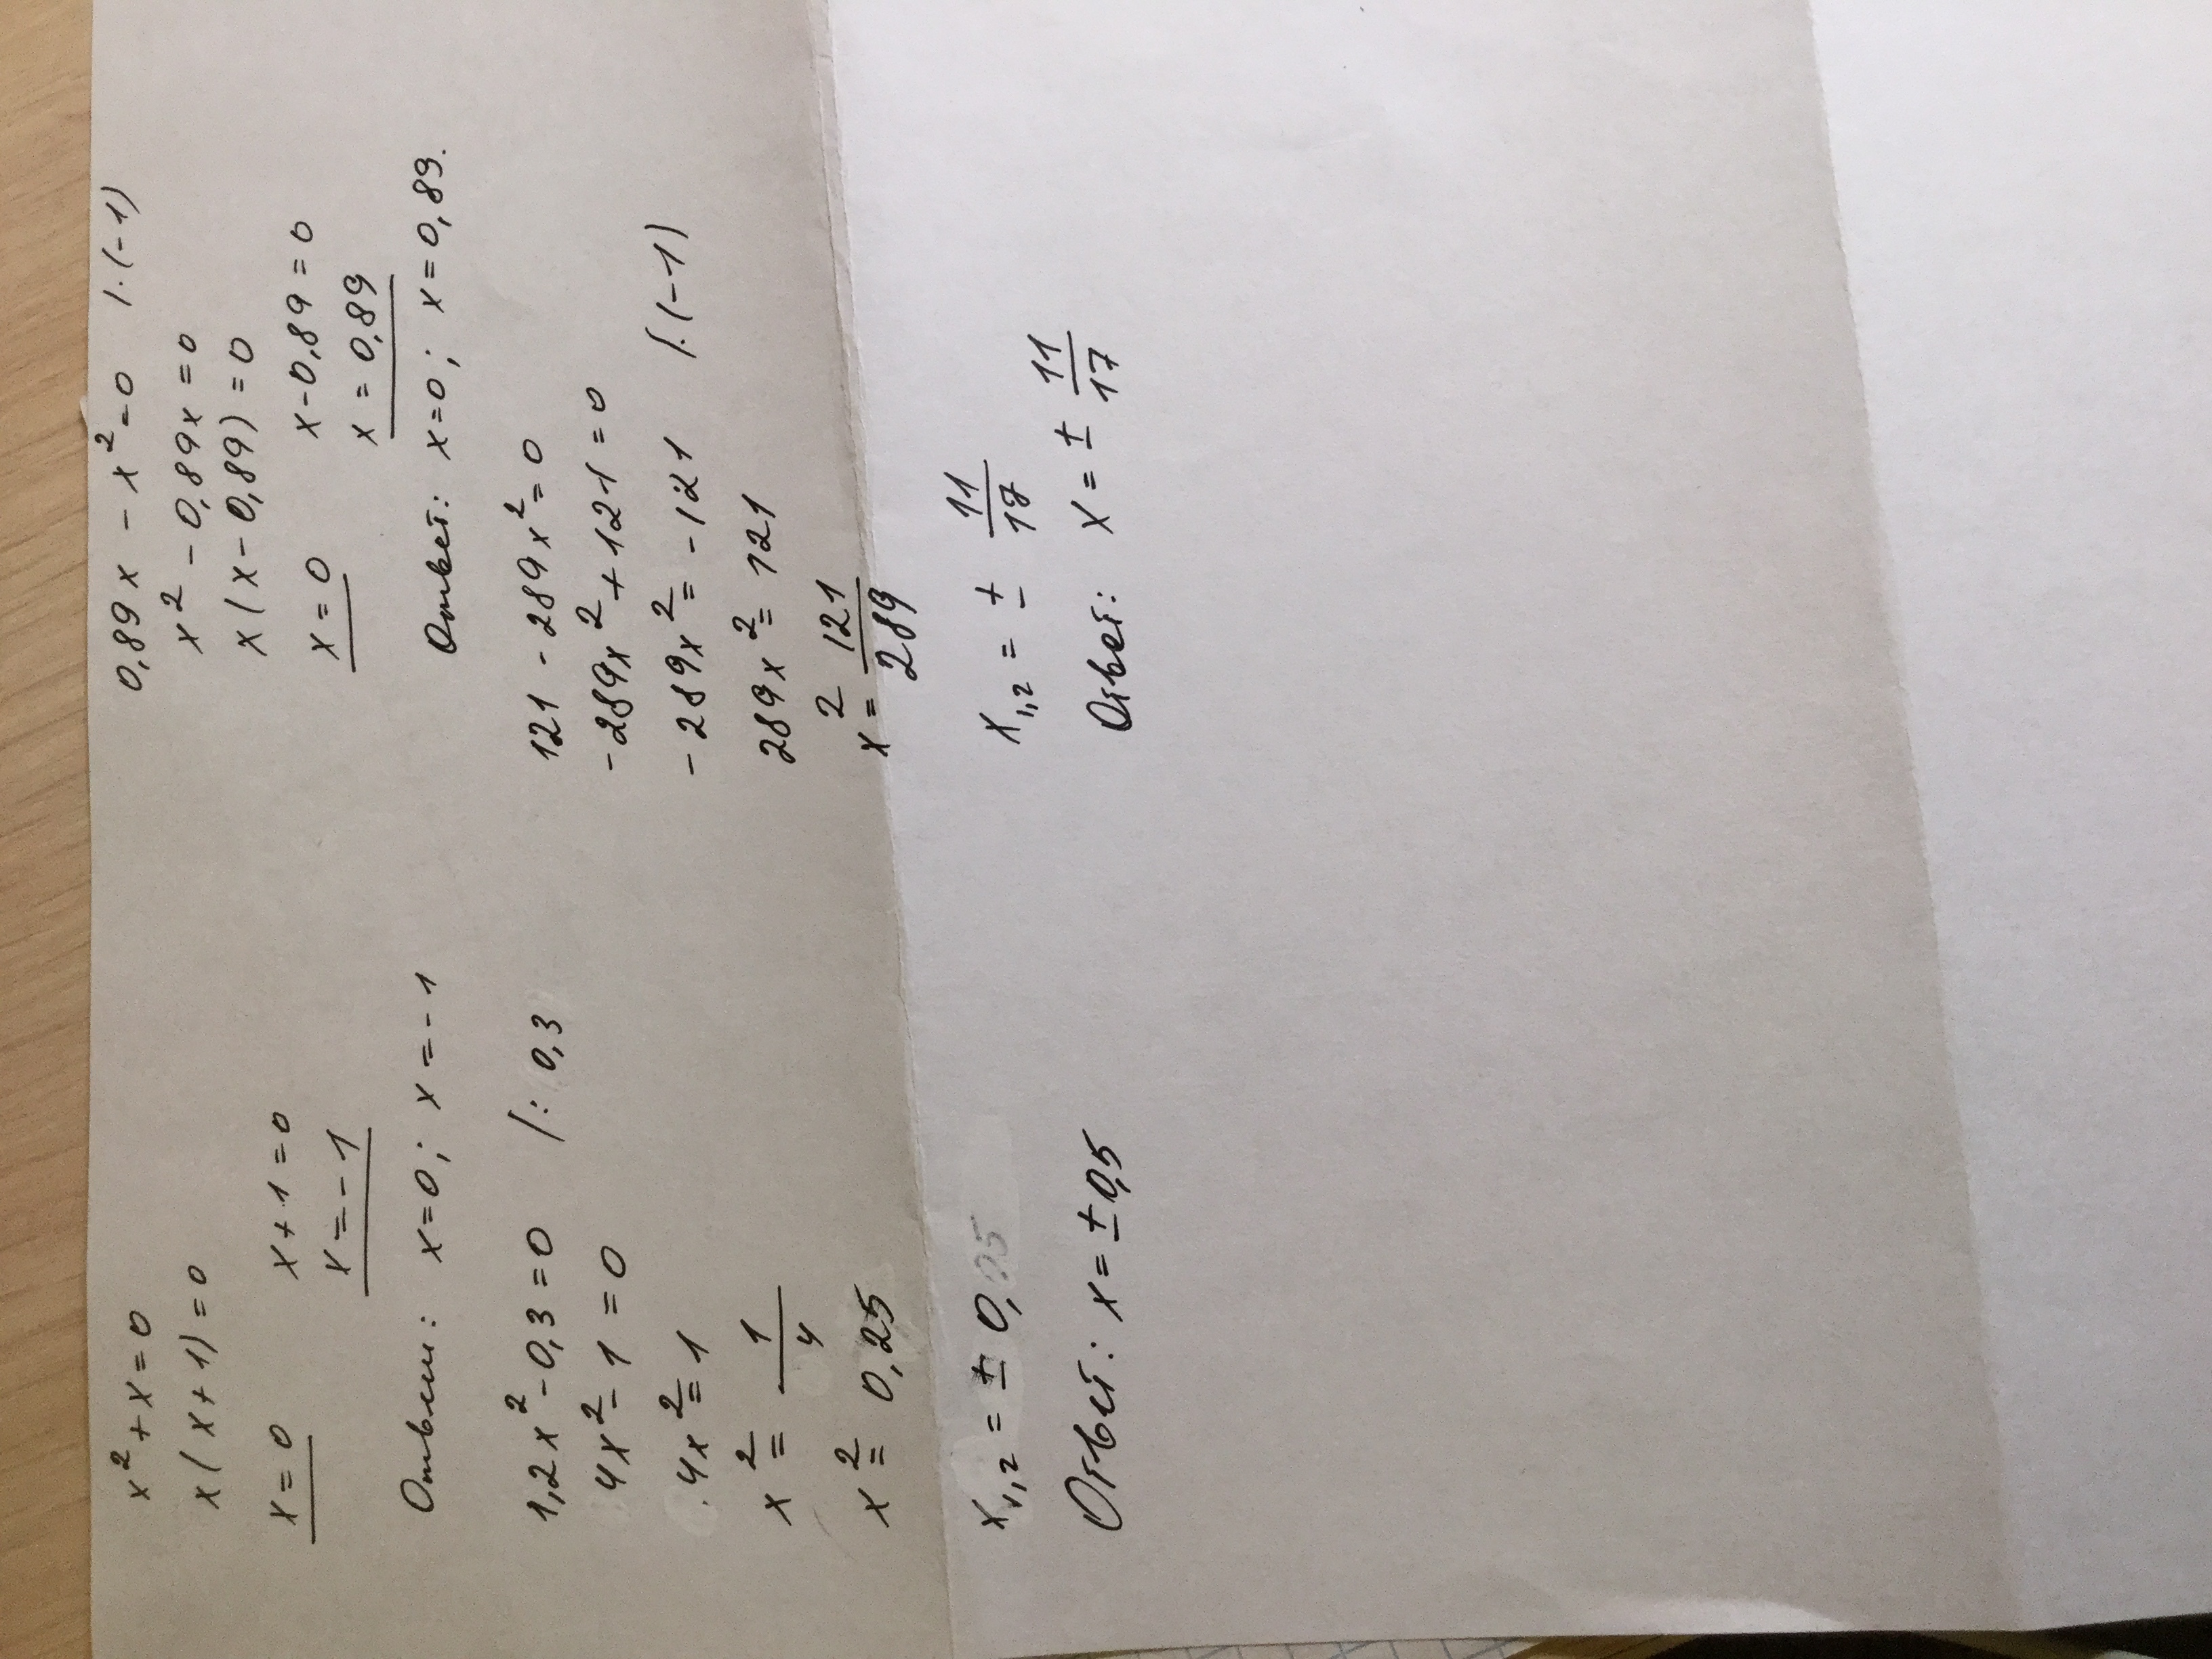 x² + x = 0
x (x + 1) = 0
x = 0 x + 1 = 0
x = - 1
Ответ: x = 0; x = - 1
1,2x² - 0,3 = 0 /: 0,3
4x² - 1 = 0
4x² = 1
x² = 1/4
x² = 0,25
x₁,₂ = ± 0,05
Ответ: x = ± 0,5
0,89x - x² = 0 /·(-1)
x² - 0,89x = 0
x (x - 0,89) = 0
x = 0 x - 0,89 = 0
x = 0,89
Ответ: x = 0; x = 0,89.
121 - 289x² = 0
- 289x² + 121 = 0
- 289x² = - 121 /·(-1)
289x² = 121
x² = 121/289
x₁,₂ = ± 11/17
Ответ: x = ± 11/17